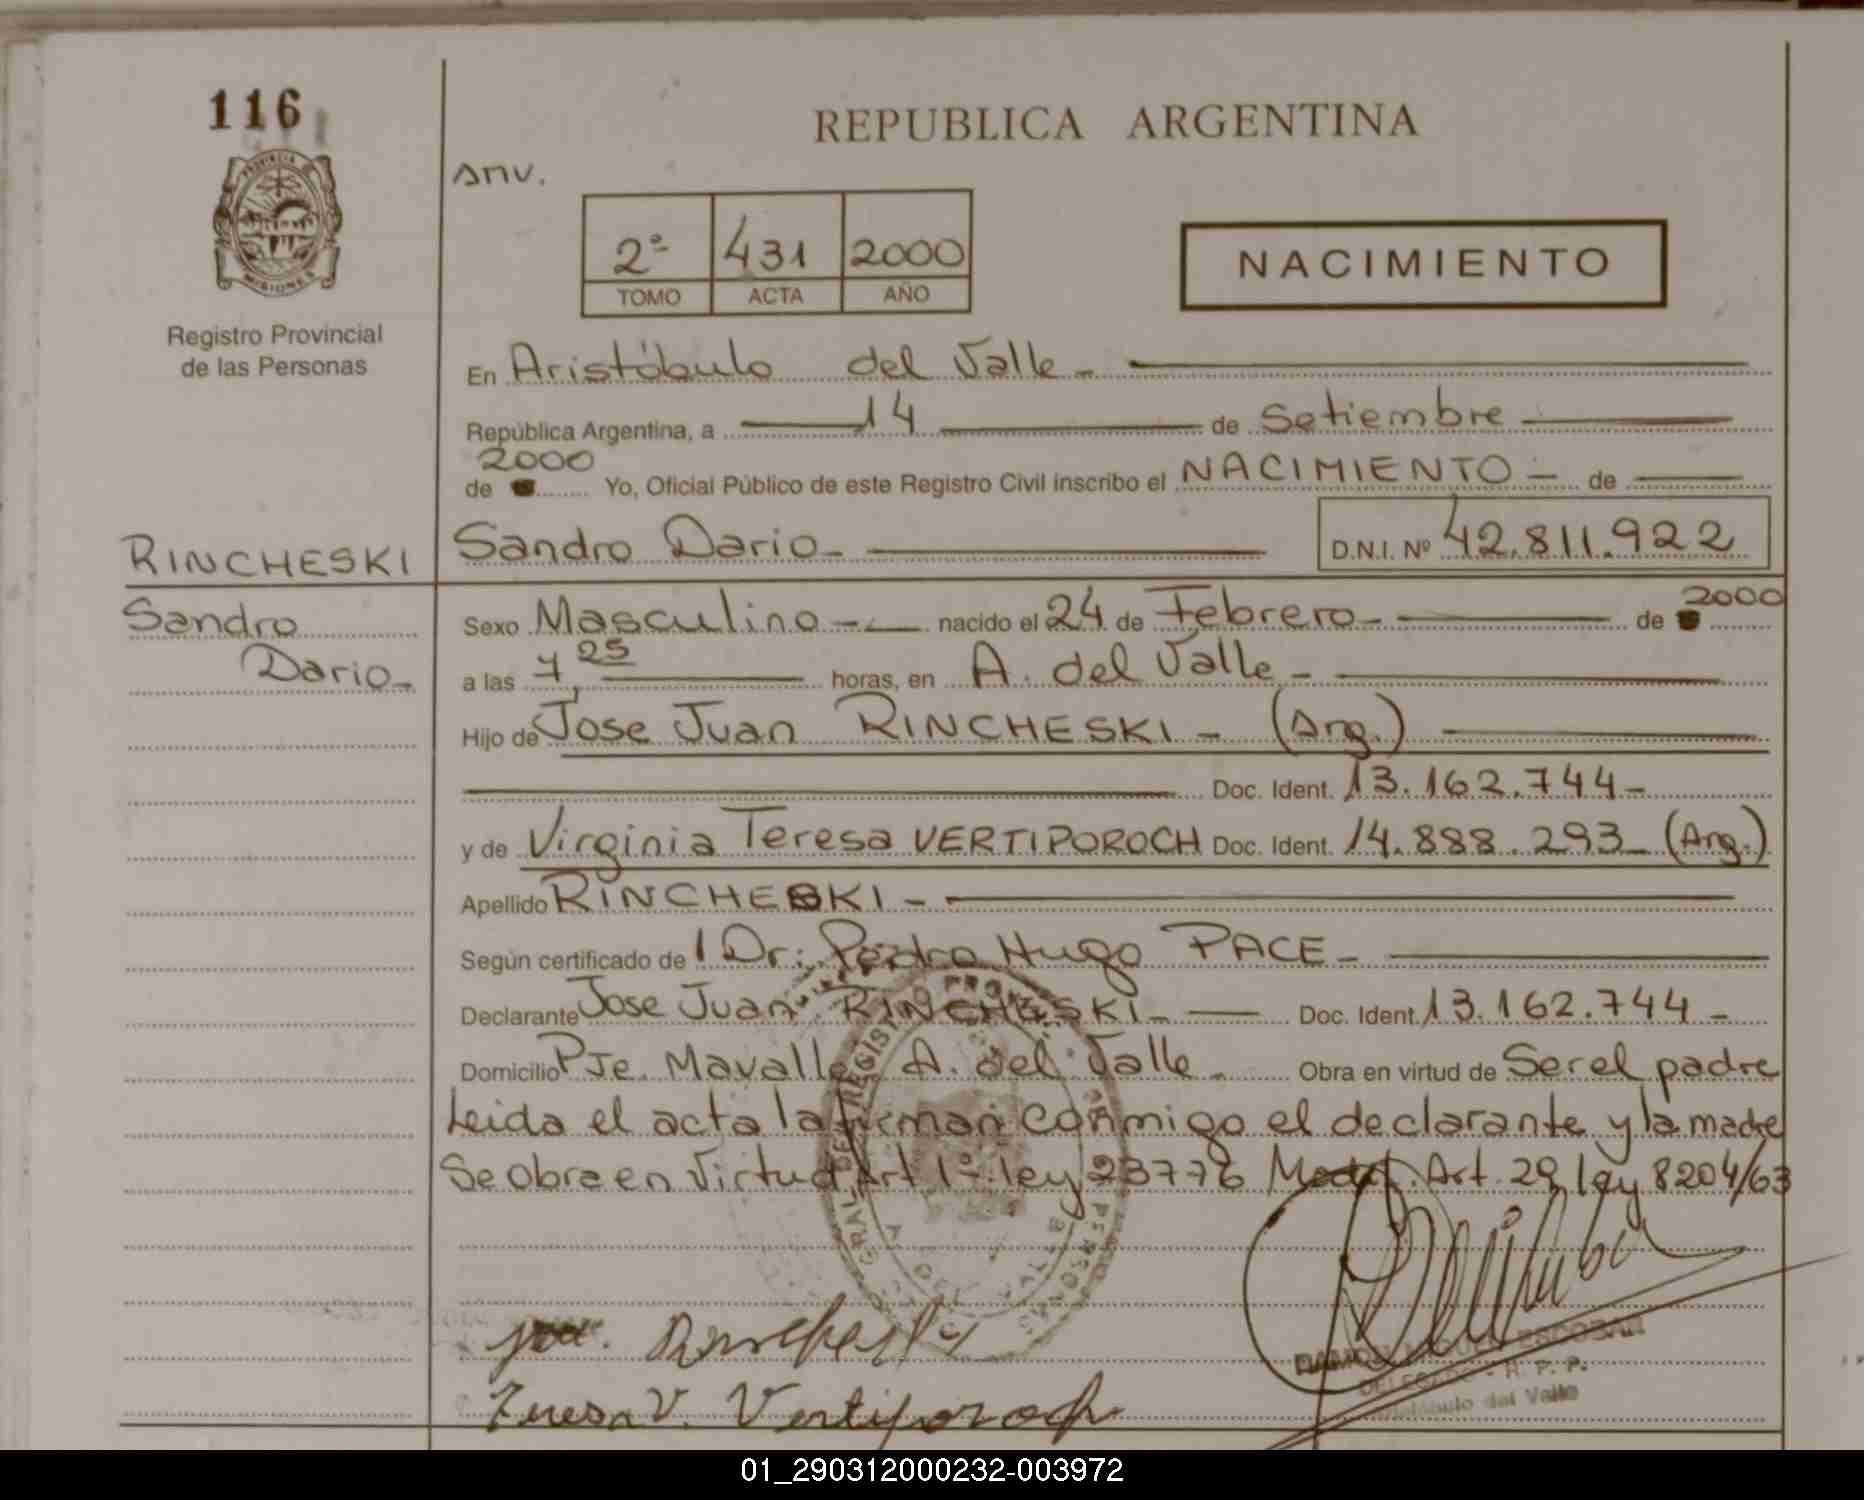 116
REPUBLICA ARGENTINA
PROVINCIA
MISIONES
Registro Provincial
de las Personas
anv.
2º 431 2000
TOMO ACTA AÑO
NACIMIENTO
En Aristóbulo del Valle -
República Argentina, a 14 de Setiembre
2000
de Yo, Oficial Público de este Registro Civil inscribo el NACIMIENTO - de
RINCHESKI Sandro Dario - D.N.I. Nº 42.811.922
Sandro
Dario -
Sexo Masculino - nacido el 24 de Febrero - de 2000
a las 7,25 horas, en A. del Valle -
Hijo de Jose Juan RINCHESKI - (Arg.)
Doc. Ident. 13.162.744 -
y de Virginia Teresa VERTIPOROCH Doc. Ident. 14.888.293 - (Arg.)
Apellido RINCHESKI -
Según certificado de l Dr: Pedro Hugo PACE -
Declarante Jose Juan RINCHESKI - Doc. Ident. 13.162.744 -
Domicilio Pje. Mavalle A. del Valle - Obra en virtud de Ser el padre
Leida el acta la firman conmigo el declarante y la madre
Se obra en Virtud Art 1º ley 23776 Modif. Art. 29 ley 8204/63
Rincheski
Teresa V. Vertiporoch
RAMON MIGUEL ESCOBAR
DELEGADO - R. P. P.
Aristóbulo del Valle
01_290312000232-003972